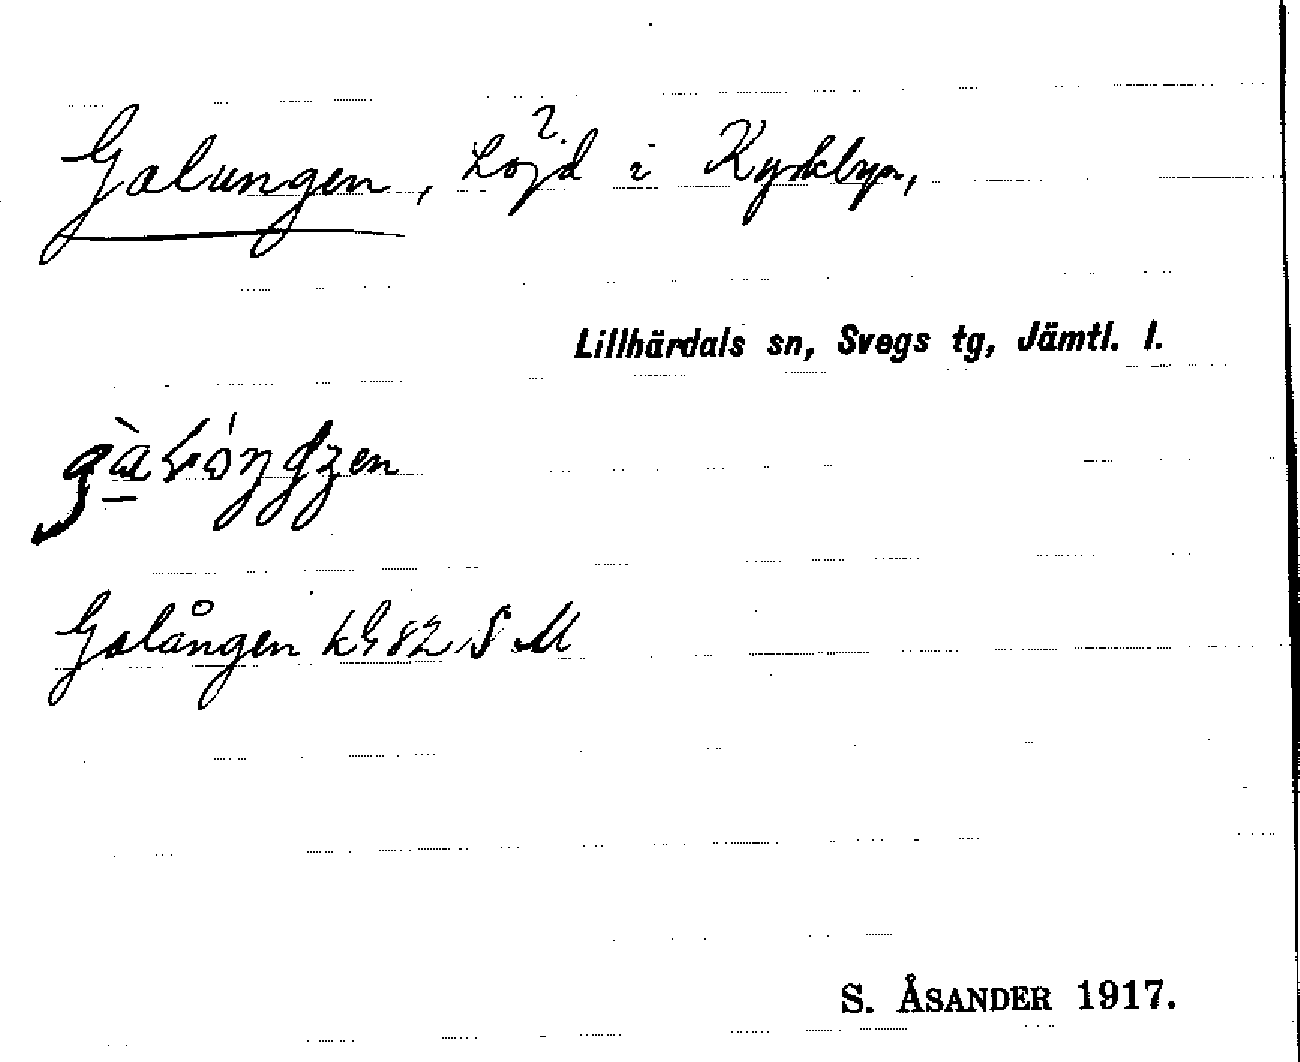 ?
Galungen, Lojd i Kyrkbyn,
Lillhärdals sn, Svegs tg, Jämtl. l.
Galången kG 82 S M
S. ÅSANDER 1917.